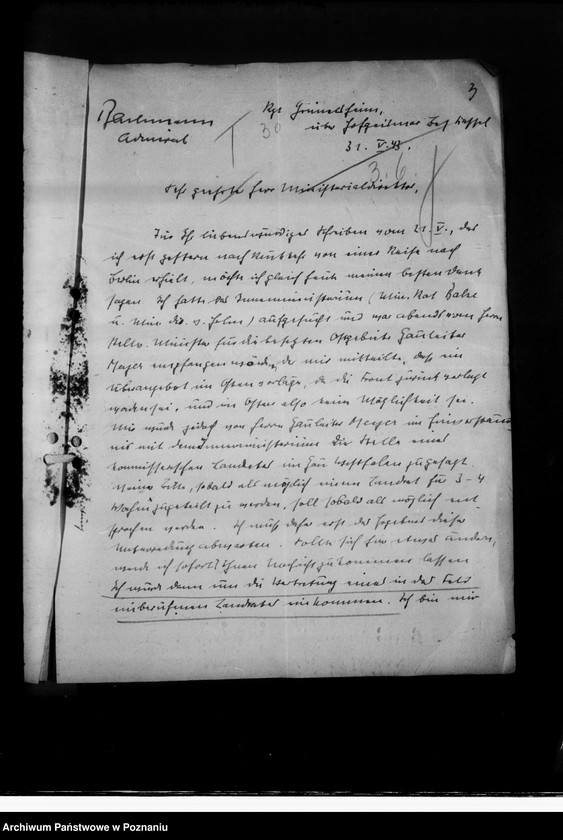 3
Bachmann
Admiral
Rgt Grimelsheim,
über Hofgeismar Bez Kassel
30
31. V. 43.
3. 6.
Sehr geehrter Herr Ministerialdirektor,
Für Ihr liebenswürdiges Schreiben vom 21. V., das
ich erst gestern nach Rückkehr von einer Reise nach
Berlin erhielt, möchte ich gleich heute meinen besten Dank
sagen. Ich hatte das Innenministerium (Min. Rat
u. Min. Dir. v. ) aufgesucht und war abends vom Herrn
Stellv. Minister für die besetzten Ostgebiete Gauleiter
Meyer empfangen worden, der mir mitteilte, dass ein
Überangebot im Osten vorläge, da die Front zurück verlegt
worden sei, und im Osten also keine Möglichkeit sei.
Mir wurde jedoch von Herrn Gauleiter Meyer im Einverständ
nis mit dem Innenministerium die Stelle eines
kommissarischen Landrates im Gau Westfalen zugesagt.
Meine Bitte, sobald als möglich einem Landrat für 3–4
Wochen zugeteilt zu werden, soll sobald als möglich ent
sprochen werden. Ich muß daher erst das Ergebnis dieser
Unterredung abwarten. Sollte sich hier etwas ändern,
werde ich sofort Ihnen Nachricht zukommen lassen
Ich würde dann um die Vertretung eines in das Feld
einberufenen Landrates einkommen. Ich bin mir
Archiwum Państwowe w Poznaniu